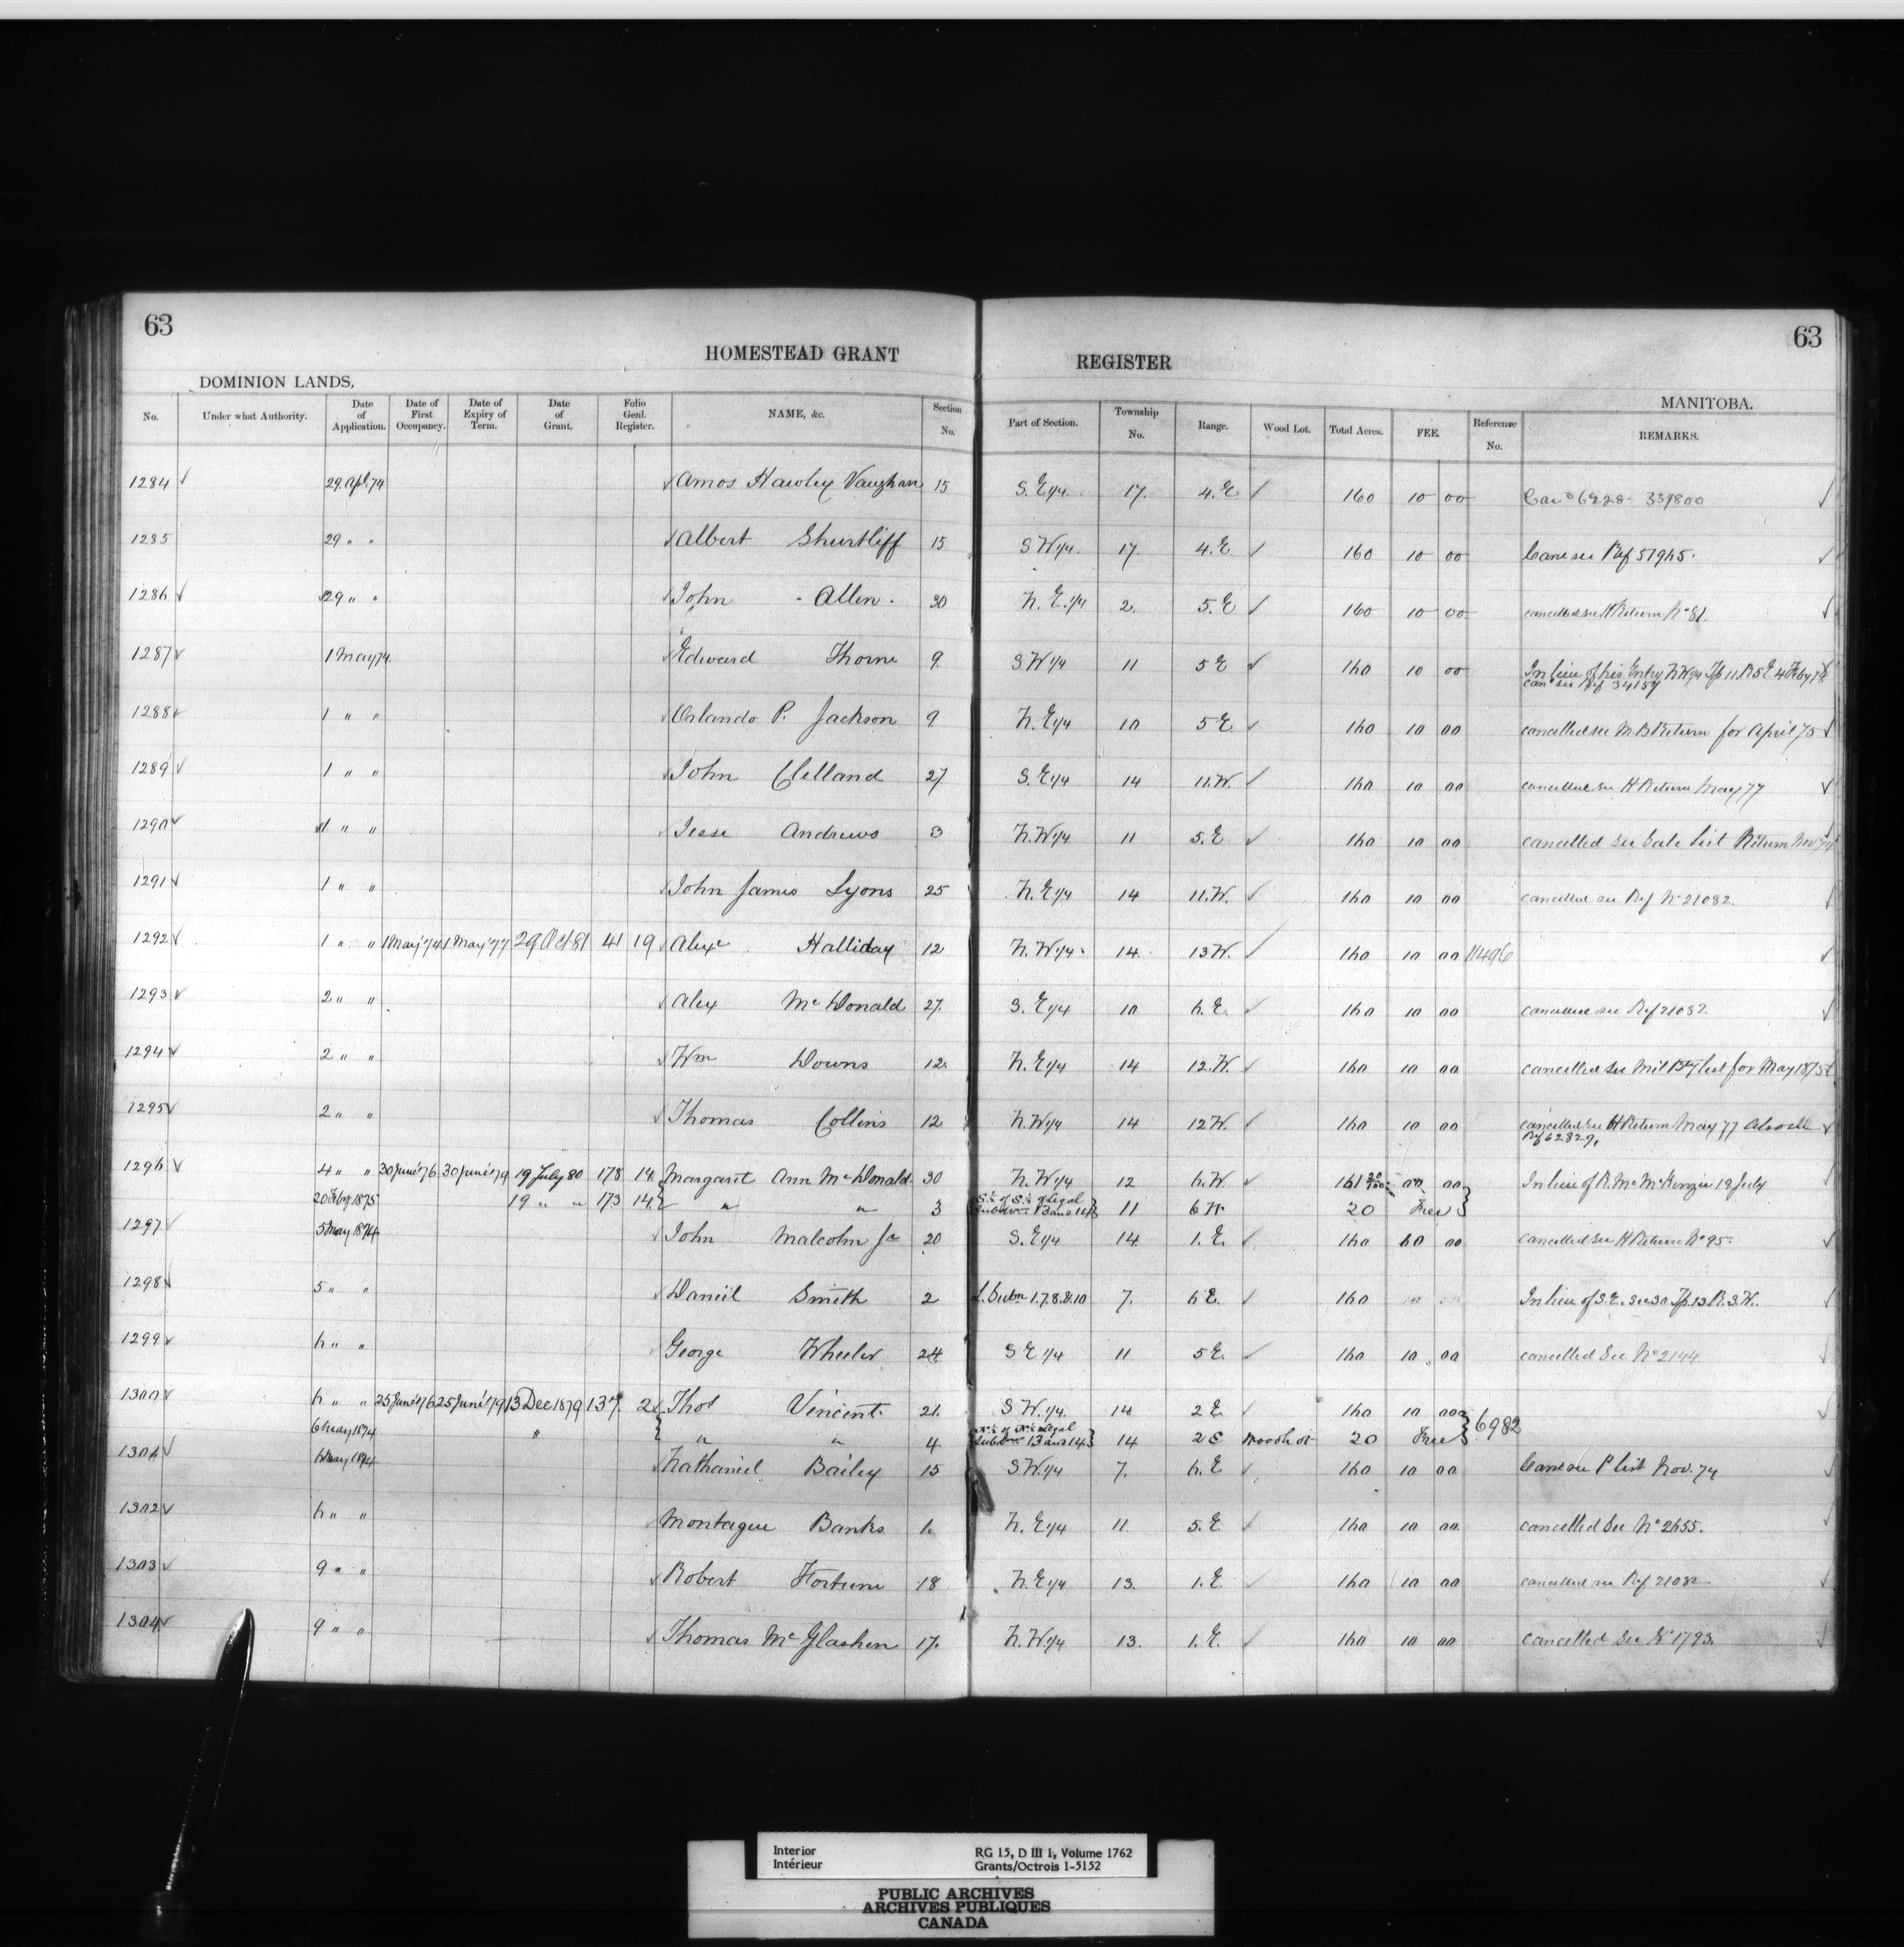 63 63
HOMESTEAD GRANT REGISTER
DOMINION LANDS, MANITOBA.
No. Under what Authority. Date of Application. Date of First Occupancy. Date of Expiry of Term. Date of Grant. Folio Genl. Register. NAME, &c. Section No. Part of Section. Township No. Range. Wood Lot. Total Acres. FEE. Reference No. REMARKS.
1284 ✓ 29 Apl. 74 ✓ Amos Hawley Vaughan 15 S.E 1/4 17 4.E ✓ 160 10 00 6928 - 339800 ✓
1285 29 " " ✓ Albert Shurtliff 15 S W 1/4 17. 4.E ✓ 160 10 00 Canc see Ref 57965. ✓
1286 ✓ 29 " " ✓ John Allen 30 N. E. 1/4 2. 5.E ✓ 160 10 00 cancelled see H Return No 81. ✓
1287 ✓ 1 May 74 ✓ Edward Thorne 9 S W 1/4 11 5 E ✓ 160 10 00 In lieu of his Entry N.W 1/4 Tp 11. R 5 E 4 Feby 74 ✓
canc see Ref 34157
1288 ✓ 1 " " ✓ Orlando P. Jackson 9 N. E 1/4 10 5 E. ✓ 160 10 00 cancelled see M.B Return for April 75 ✓
1289 ✓ 1 " " ✓ John Clelland 27 S. E 1/4 14 11.W. ✓ 160 10 00 cancelled see H Return May 77 ✓
1290 ✓ 1 " " Jesse Andrews 3 N.W 1/4 11 5.E ✓ 160 10 00 cancelled see Sale List Return Nov 74 ✓
1291 ✓ 1 " " ✓ John James Lyons 25 N. E 1/4 14 11.W. ✓ 160 10 00 cancelled see Ref No 21082. ✓
1292 ✓ 1 " " 1 May '74 1 May '77 29 Oct 81 41 19 Alexr Halliday 12 N. W 1/4 14 13 W. ✓ 160 10 00 11496 ✓
1293 ✓ 2 " " ✓ Alex McDonald 27. S. E 1/4 10 6.E. ✓ 160 10 00 cancelled see Ref 21082. ✓
1294 ✓ 2 " " ✓ Wm Downs 12. N. E 1/4 14 12.W. ✓ 160 10 00 cancelled see Mil Bty list for May 1875 ✓
1295 ✓ 2 " " ✓ Thomas Collins 12 N.W 1/4 14 12 W. ✓ 160 10 00 cancelled see H Return May 77 Also see ✓
Ref 62829.
1296 ✓ 4 " " 30 June '76 30 June '79 19 July 80 178 14 Margaret Ann McDonald. 30 N. W 1/4 12 6.W 161 00 00 In lieu of R. Mc McKenzie 18 July ✓
20 Feby 1875 19 " " 173 14 " " 3 S ½ of S ½ of Legal Subdivn 13 and 14 11 6 W 20 Free
1297 ✓ 5 May 1874 ✓ John Malcolm Jr 20 S. E 1/4 14 1. E. ✓ 160 10 00 cancelled see H Return No 95. ✓
1298 ✓ 5 " " ✓ Daniel Smith 2 L. Subn 1.7.8.9.10 7. 6 E. ✓ 160 In lieu of S.E. Sec 30 Tp. 13 R. 3. W. ✓
1299 ✓ 6 " " George Wheeler 24 S E 1/4 11 5 E. ✓ 160 10 00 cancelled See No 2144 ✓
1300 ✓ 6 " " 25 June '76 25 June '79 13 Dec 1879 137 2 Thos Vincent 21. S W. 1/4 14 2 E ✓ 160 10 00 6982 ✓
6 May 1874 " " " 4. N ½ of N ½ Legal Subdivn 13 and 14 14 2 E Woodlot 20 Free
1301 ✓ 6 May 1874 ✓ Nathaniel Bailey 15 S W. 1/4 7. 6. E ✓ 160 10 00 Canc see P list Nov. 74 ✓
1302 ✓ 6 " " Montague Banks 1. N. E 1/4 11. 5. E ✓ 160 10 00 cancelled See No 2655. ✓
1303 ✓ 9 " " ✓ Robert Fortune 18 N. E 1/4 13. 1. E. ✓ 160 10 00 cancelled see Ref 21082 ✓
1304 ✓ 9 " " ✓ Thomas McGlashen 17. N. W 1/4 13. 1. E. ✓ 160 10 00 cancelled See No 1793. ✓
Interior RG 15, D III 1, Volume 1762
Intérieur Grants/Octrois 1-5152
PUBLIC ARCHIVES
ARCHIVES PUBLIQUES
CANADA